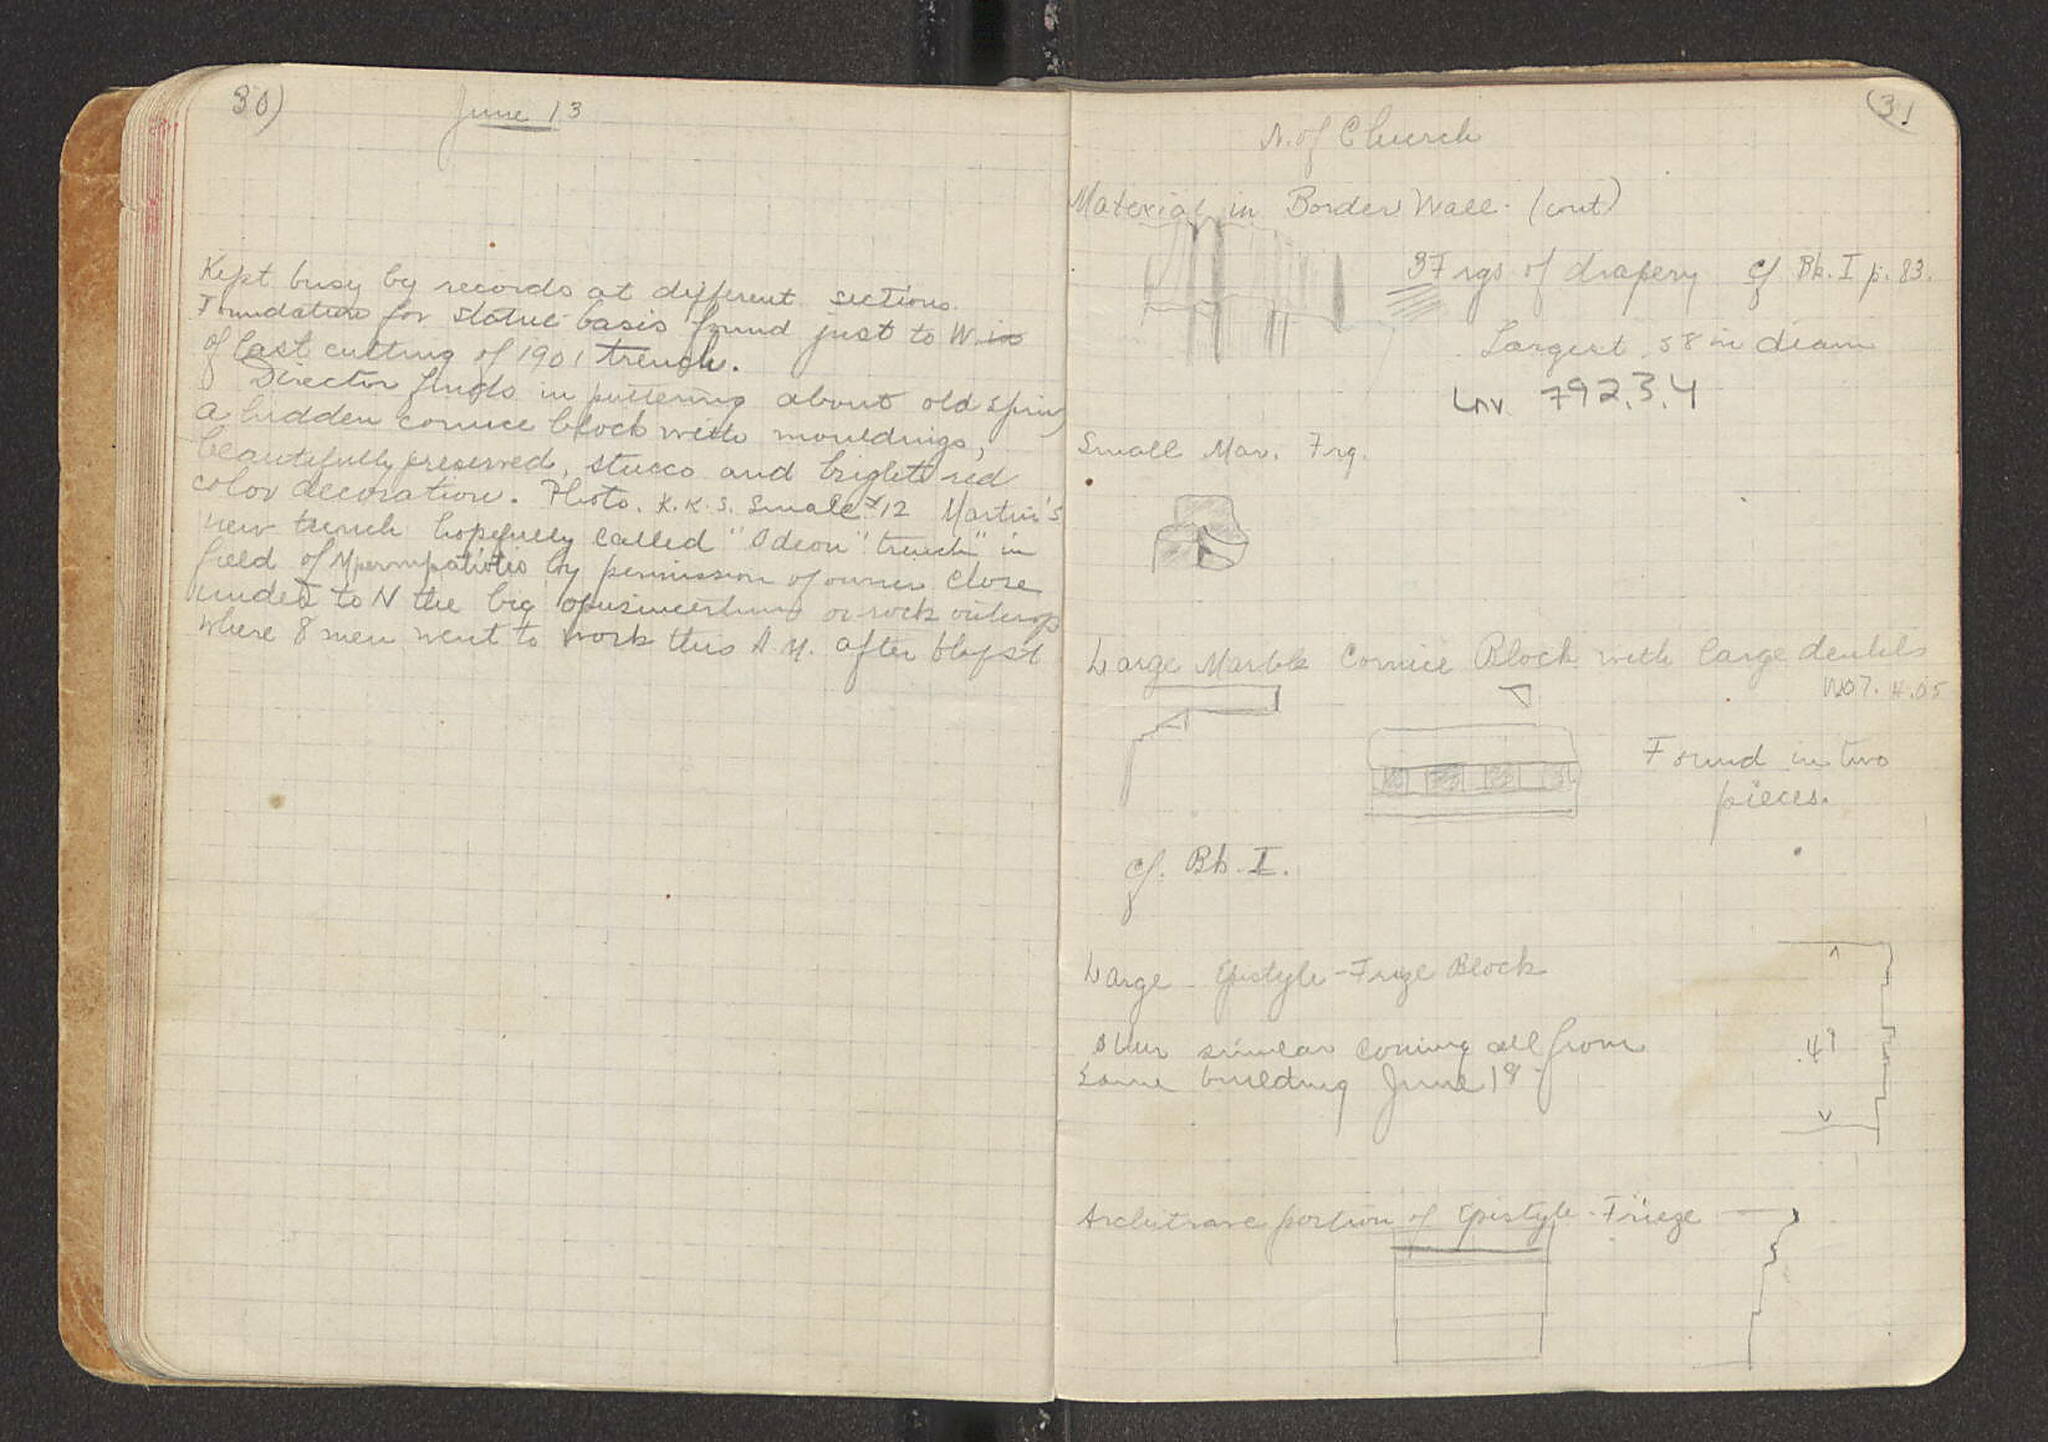 30)
June 13
Kept busy by records at different sections.
Foundation for statue basis found just to W. in
of last cutting of 1901 trench.
Director finds in puttering about old spring
a hidden cornice block with mouldings,
beautifully preserved, stucco and bright red
color decoration. Photo. K.K.S. Small #12 Martin's
new trench hopefully called "Odeon" trench" in
field of by permission of owner close
under to N the big opus incertum or rock outcrop
where 8 men went to work this A.M. after
(31
N. of Church
Material in Border Wall. (cont)
3 Frgs of drapery cf. Bk. I p. 83.
Largest .58 in diam
Inv. 792.3.4
Small Mar. Frg.
Large Marble Cornice Block with large dentils
Found in two
pieces.
cf. Bk. I.
Large Epistyle-Frieze Block
similar coming all from
same building June 19
.47
Architrave portion of Epistyle-Frieze